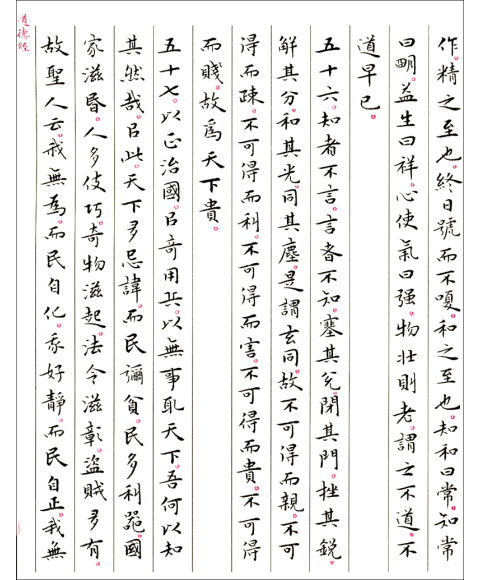 作。精之至也。終日號而不嗄。和之至也。知和曰常。知常
曰明。益生曰祥。心使氣曰强。物壯則老。謂之不道。不
道早已。
五十六。知者不言。言者不知。塞其兌。閉其門。挫其銳。
解其分。和其光。同其塵。是謂玄同。故不可得而親。不可
得而疎。不可得而利。不可得而害。不可得而貴。不可得
而賤。故爲天下貴。
五十七。以正治國。以奇用兵。以無事取天下。吾何以知
其然哉。以此。天下多忌諱。而民彌貧。民多利器。國
家滋昏。人多伎巧。奇物滋起。法令滋彰。盜賊多有。
故聖人云。我無爲。而民自化。我好靜。而民自正。我無
道德经